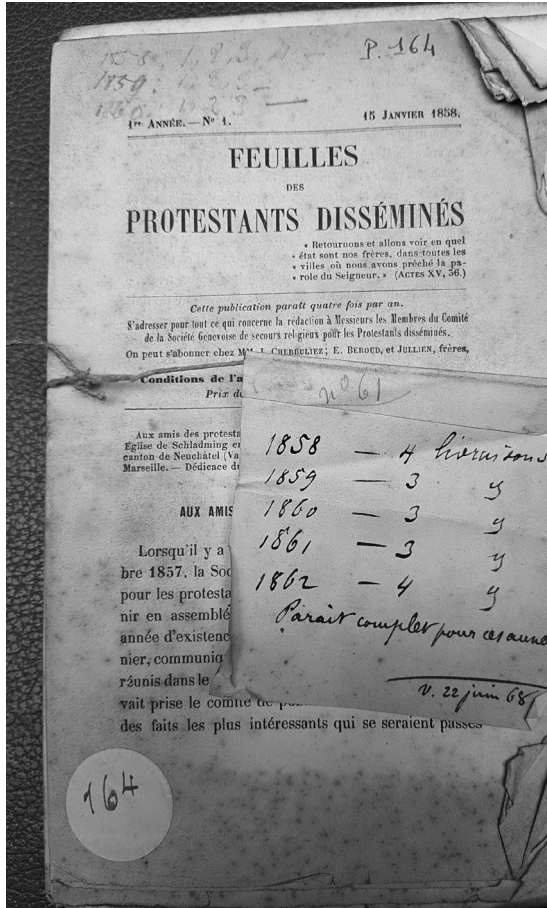 P. 164
1858. 1, 2, 3, 4 —
1859. 1, 2, 3 —
1860. 1 2 3 —
1re ANNÉE. — No 1. 15 JANVIER 1858.
FEUILLES
DES
PROTESTANTS DISSÉMINÉS
« Retournons et allons voir en quel
« état sont nos frères, dans toutes les
« villes où nous avons prêché la pa-
« role du Seigneur. » (ACTES XV, 36.)
Cette publication paraît quatre fois par an.
S'adresser pour tout ce qui concerne la rédaction à Messieurs les Membres du Comité
de la Société Genevoise de secours religieux pour les Protestants disséminés.
On peut s'abonner chez MM. J. CHERBULIEZ; E. BEROUD, et JULLIEN, frères,
Conditions de l'a
Prix d
Aux amis des protesta
Église de Schladming e
canton de Neuchâtel (Va
Marseille. — Dédicace d
AUX AMIS
Lorsqu'il y a
bre 1857, la Soc
pour les protesta
nir en assemblé
année d'existenc
nier, communiq
réunis dans le
vait prise le comité de
des faits les plus intéressants qui se seraient passés
no 61
1858 — 4 livraisons
1859 — 3 y
1860 — 3 y
1861 — 3 y
1862 — 4 y
Paraît complet pour ces
V. 22 juin 68
164